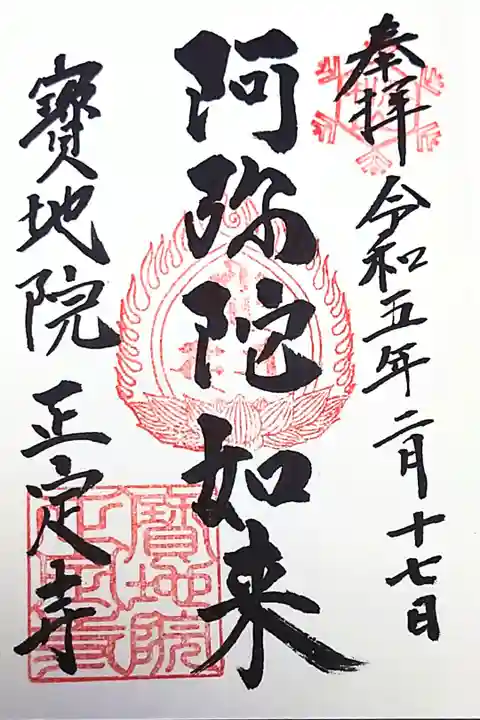 奉拝 令和五年二月十七日
阿弥陀如来
寶地院 正定寺
寶地院